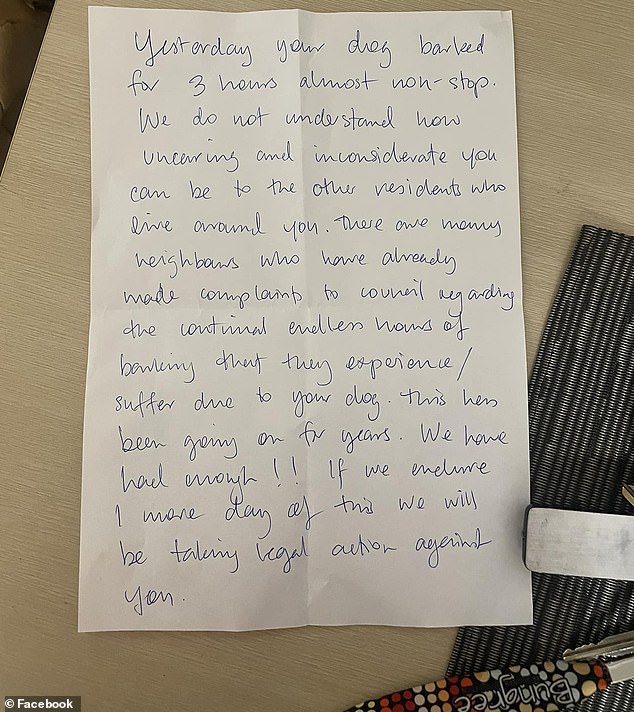 Yesterday your dog barked
for 3 hours almost non-stop.
We do not understand how
uncaring and inconsiderate you
can be to the other residents who
live around you. There are many
neighbours who have already
made complaints to council regarding
the continual endless hours of
barking that they experience/
suffer due to your dog. This has
been going on for years. We have
had enough!! If we endure
1 more day of this we will
be taking legal action against
you.
Bungree
Facebook